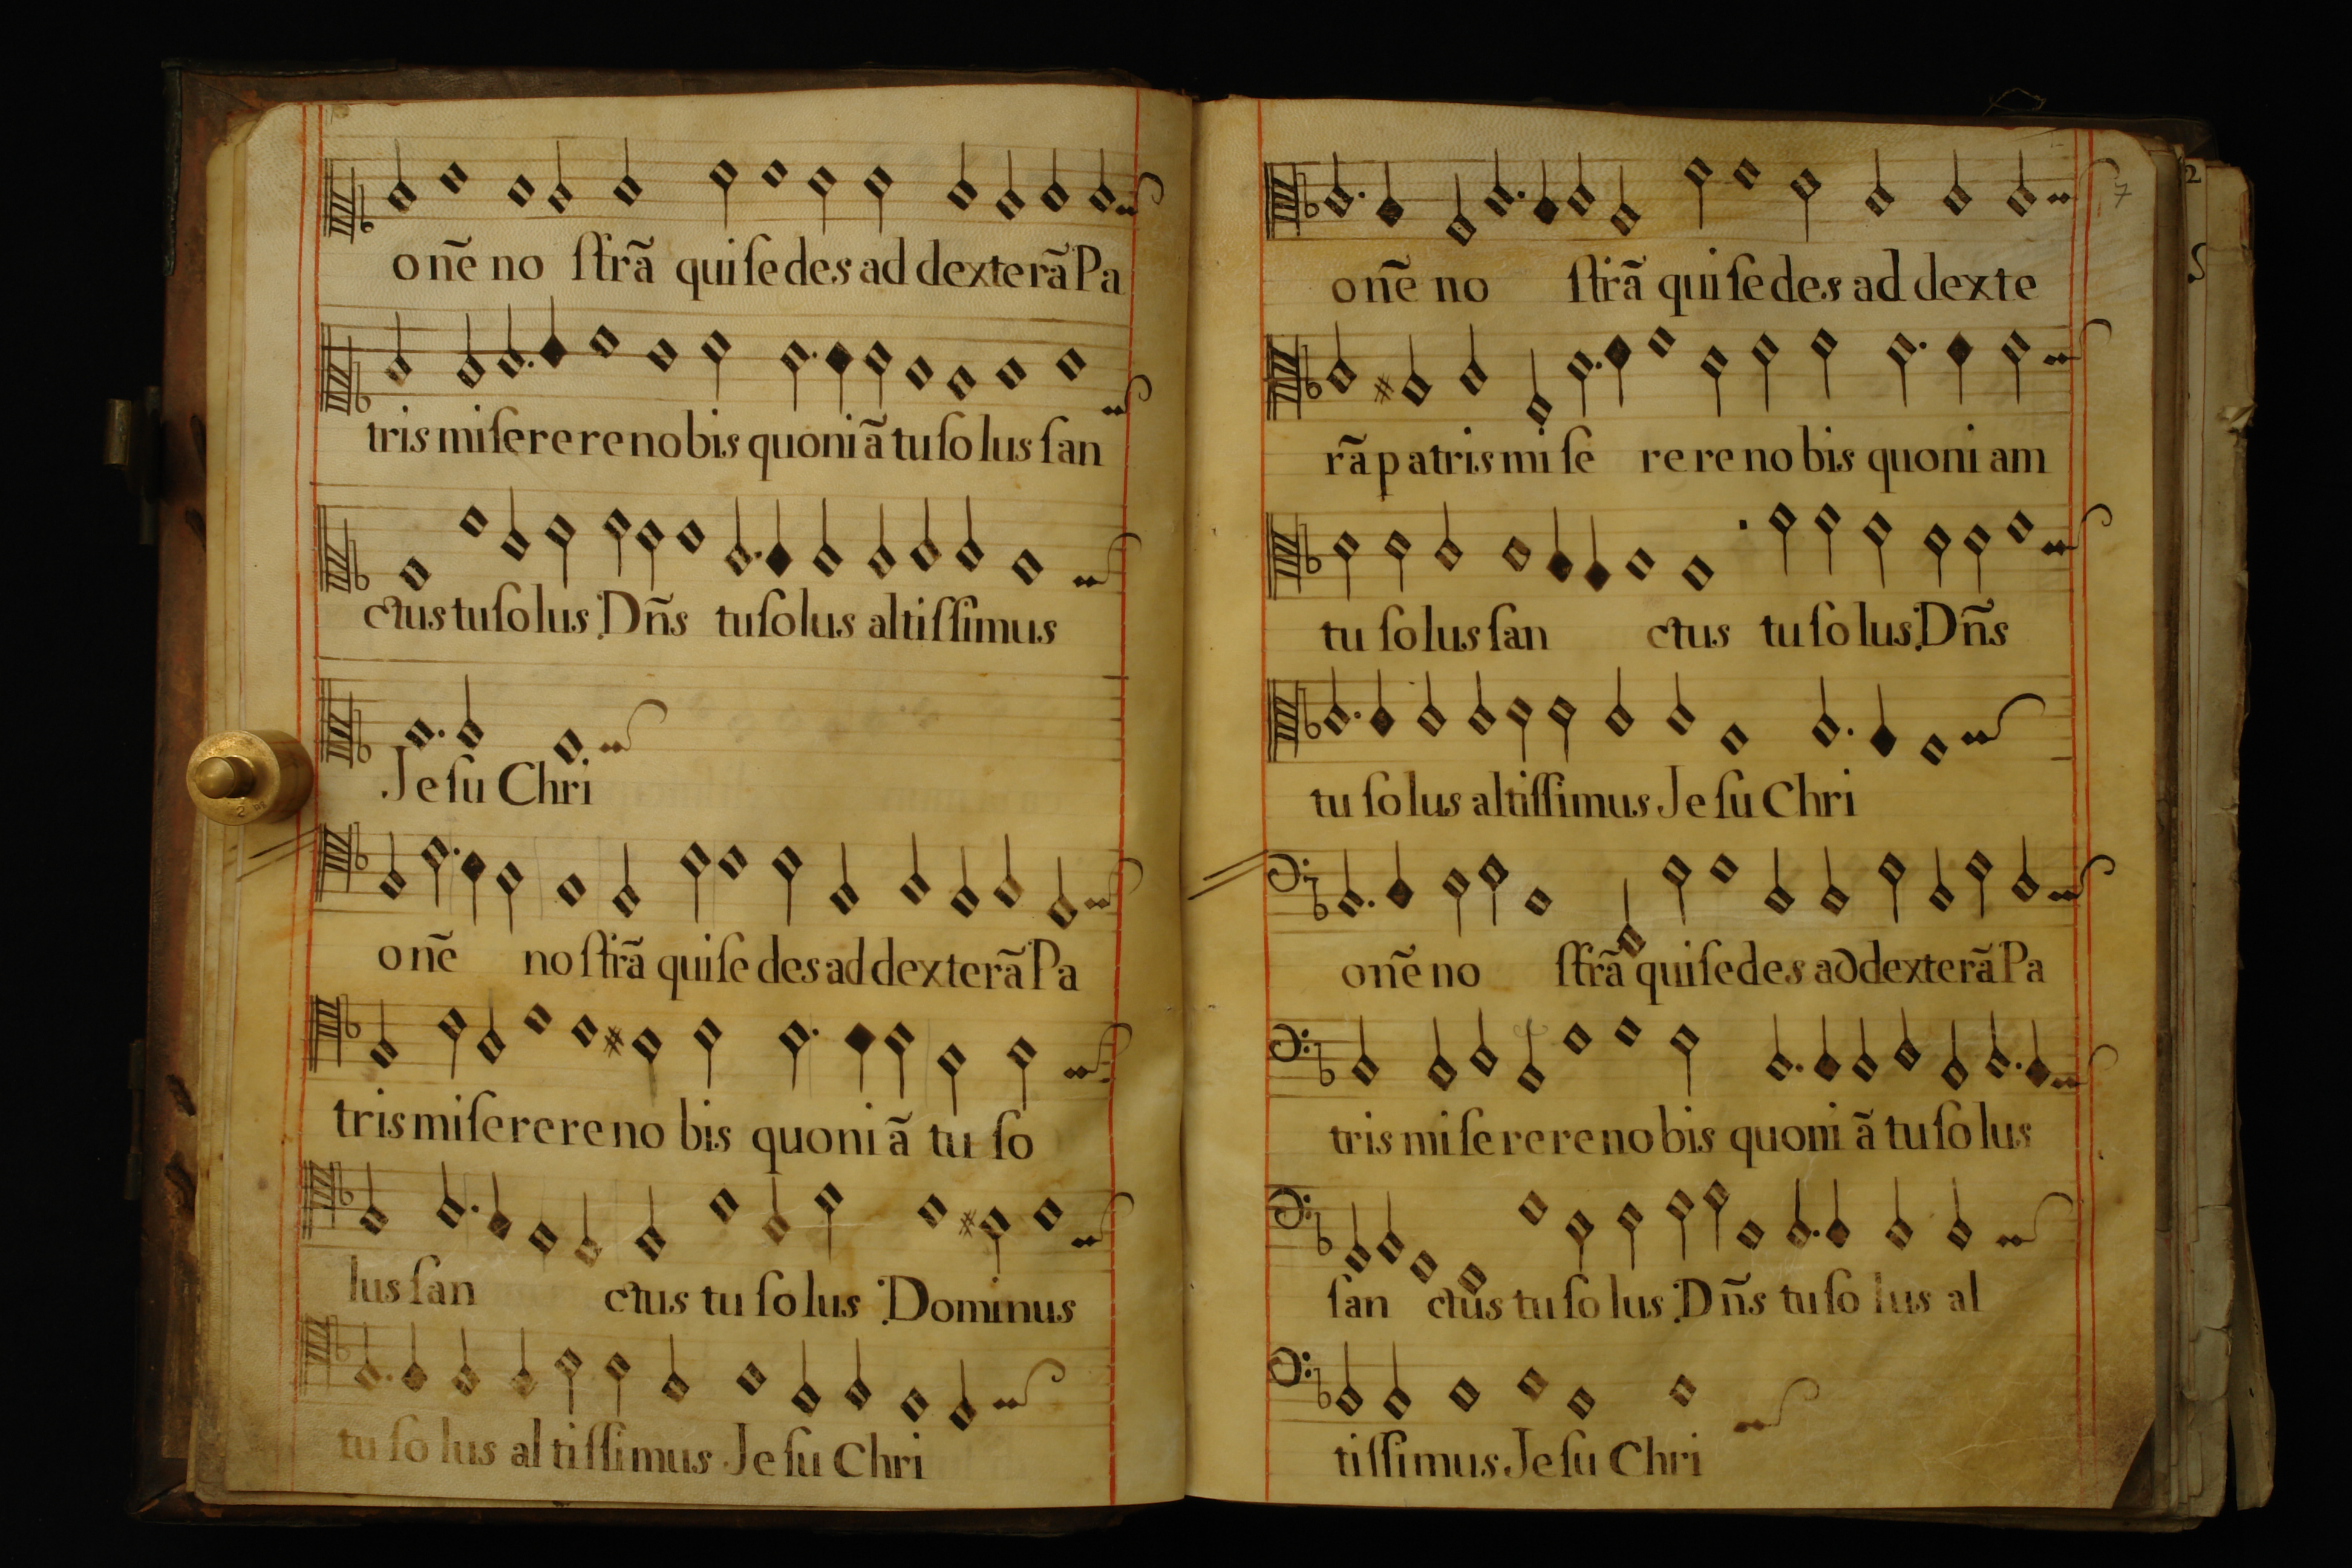 onẽ no ſtrã qui ſedes ad dexterã Pa
tris miſerere nobis quoniã tu ſolus ſan
ctus tu ſolus Dñs tu ſolus altiſſimus
Jeſu Chri
onẽ noſtrã qui ſedes ad dexterã Pa
tris miſerere nobis quoniã tu ſo
lus ſan ctus tu ſolus Dominus
tu ſolus altiſſimus Jeſu Chri
7
onẽ no ſtrã qui ſedes ad dexte
rã patris miſe rere nobis quoniam
tu ſolus ſan ctus tu ſolus Dñs
tu ſolus altiſſimus Jeſu Chri
onẽ no ſtrã qui ſedes ad dexterã Pa
tris miſerere nobis quoniã tu ſolus
ſan ctus tu ſolus Dñs tu ſolus al
tiſſimus Jeſu Chri
2